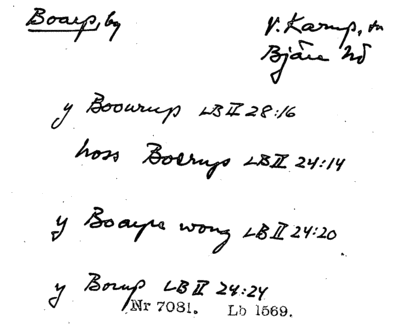 Boarp, by V. Karup, sn
Bjäre hd
y Boowrup LB II 28:16
hoss Boerup LB II 24:14
y Boarpe wong LB II 24:20
y Borup LB II 24:24
Nr 7081. Lb 1569.